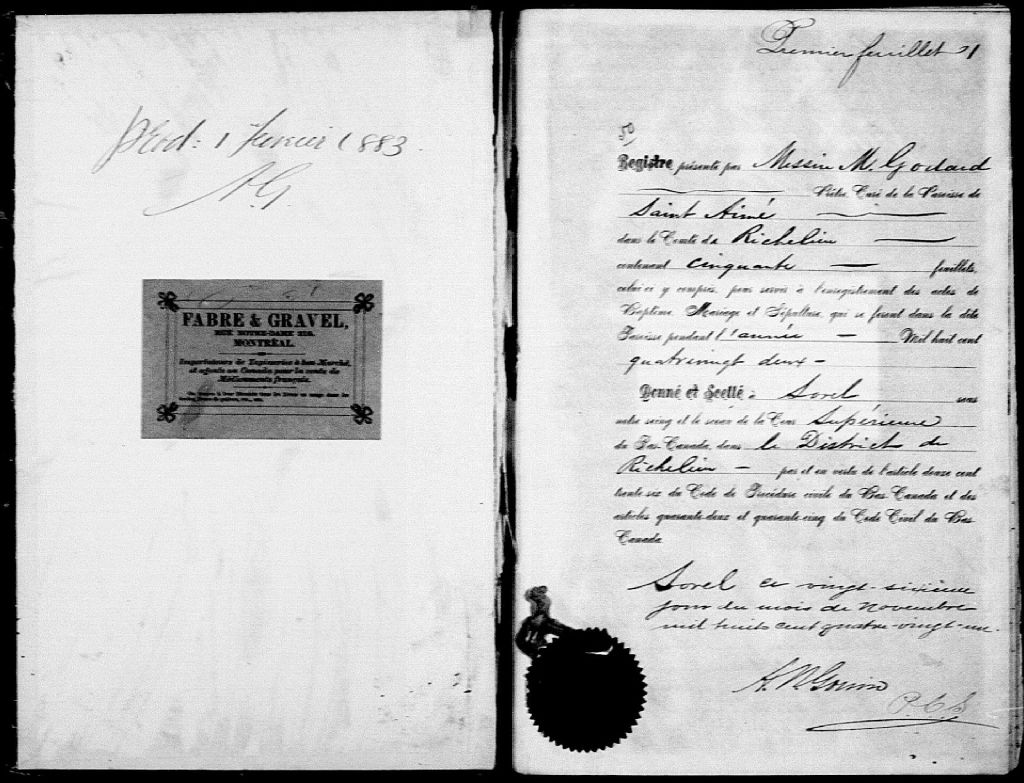 1 Janvier 1883
A.G.
FABRE & GRAVEL,
RUE NOTRE-DAME 219.
MONTRÉAL.
Importateurs de Tapisseries à bon Marché,
et agents au Canada pour la vente de
Médicaments français.
Premier feuillet 1
50
Registre présenté par Messire M. Godard
Prêtre Curé de la Paroisse de
Saint Aimé
dans le Comté de Richelieu
contenant cinquante feuillets,
celui-ci y compris, pour servir à l'enregistrement des actes de
Baptême, Mariage et Sépulture, qui se feront dans la dite
Paroisse pendant l'année - Mil huit cent
quatrevingt deux -
Donné et Scellé à Sorel sous
notre seing et le sceau de la Cour Supérieure
du Bas-Canada, dans le District de
Richelieu - par et en vertu de l'article douze cent
trente-six du Code de Procédure civile du Bas-Canada et des
articles quarante-deux et quarante-cinq du Code Civil du Bas-
Canada
Sorel ce vingt-sixième
jour du mois de novembre
mil huits cent quatre-vingt-un.
A. N. Gouin
P.C.S.